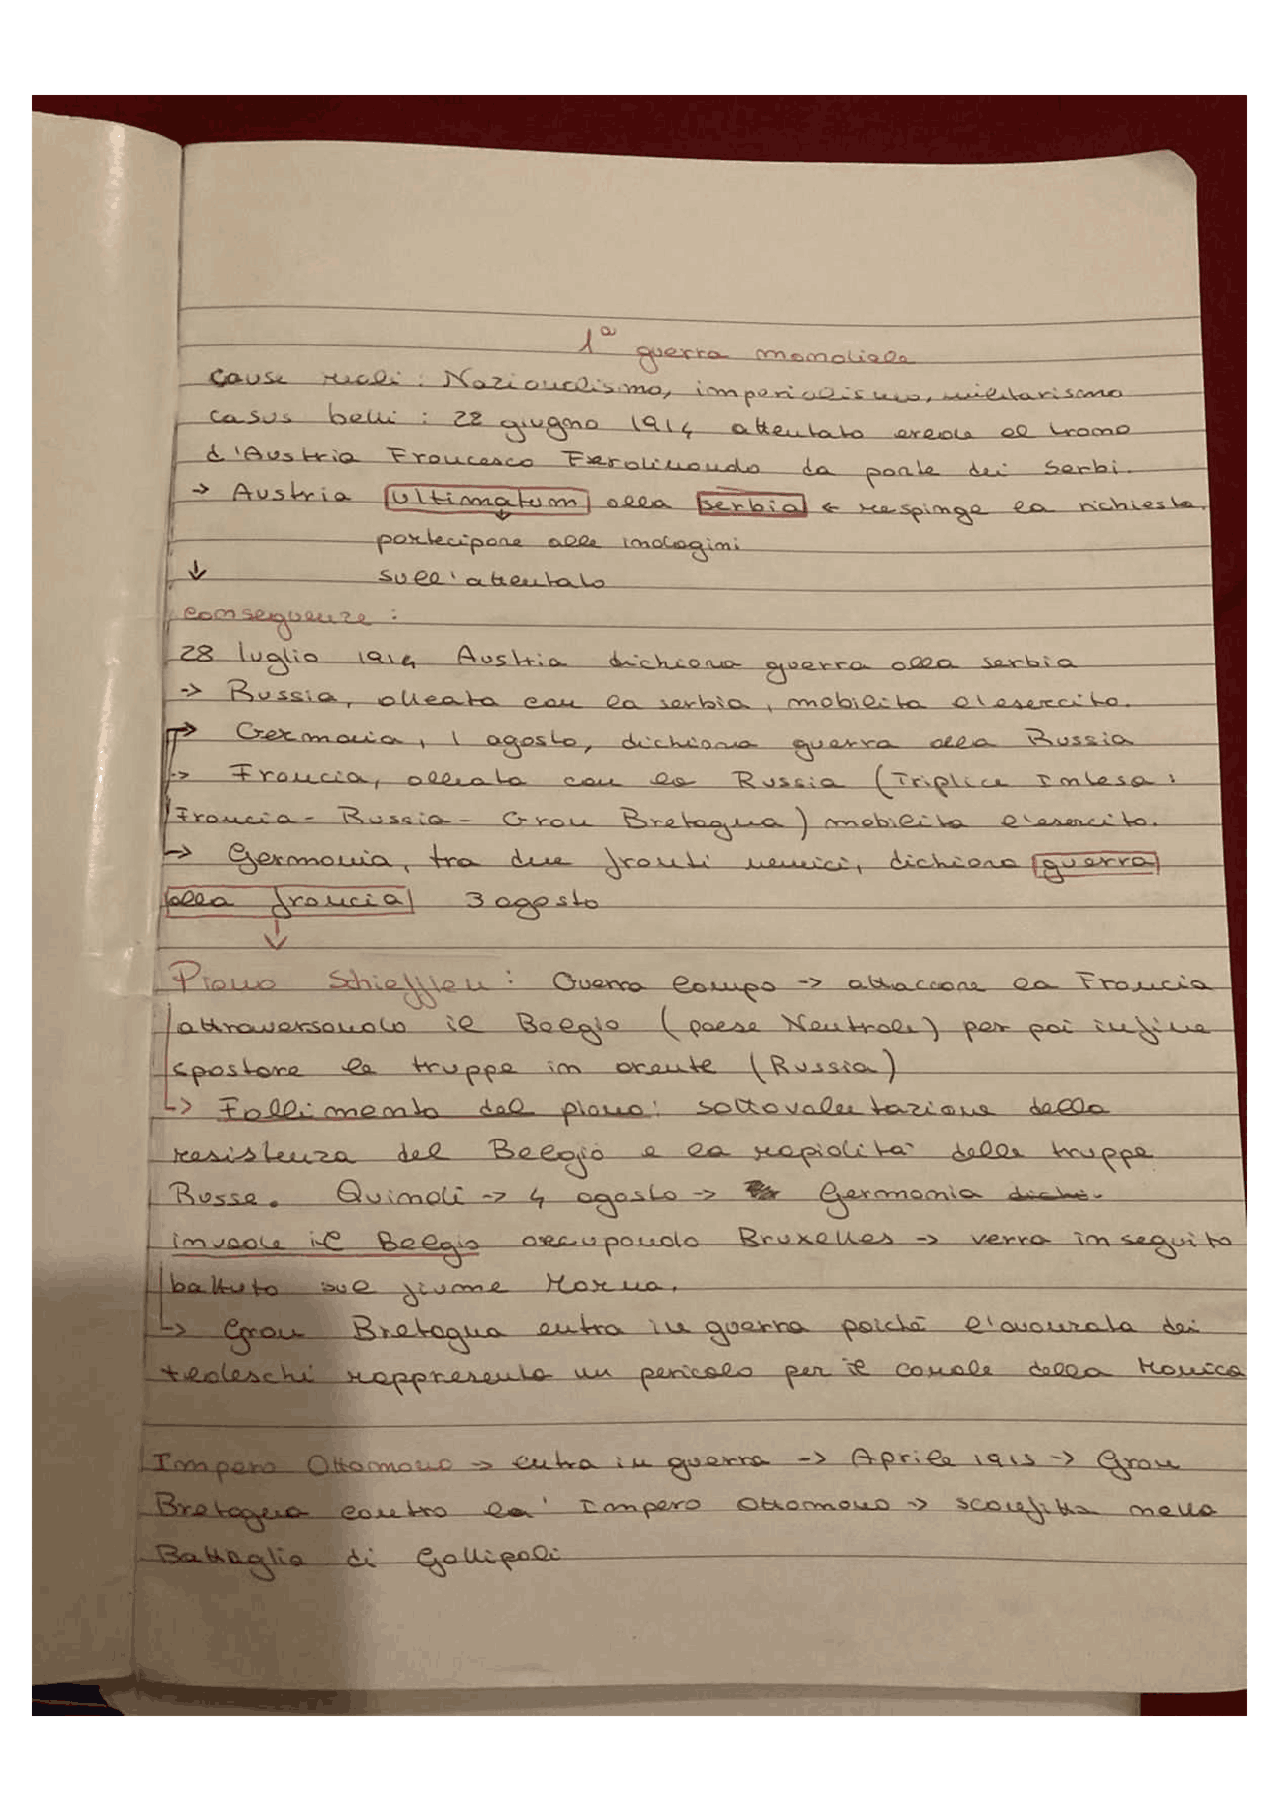 1ª guerra mondiale
cause reali: Nazionalismo, imperialismo, militarismo
casus belli: 28 giugno 1914 attentato erede al trono
d'Austria Francesco Ferdinando da parte dei Serbi.
→ Austria ultimatum alla serbia ← respinge la richiesta.
partecipare alle indagini
↓ sull'attentato
conseguenze:
28 luglio 1914 Austria dichiara guerra alla serbia
→ Russia, alleata con la serbia, mobilita l'esercito.
→ Germania, 1 agosto, dichiara guerra alla Russia
→ Francia, alleata con la Russia (Triplice Intesa:
Francia - Russia - Gran Bretagna) mobilita l'esercito.
→ Germania, tra due fronti nemici, dichiara guerra
alla francia 3 agosto
↓
Piano Schieffen: Guerra lampo → attaccare la Francia
attraversando il Belgio (paese Neutrale) per poi infine
spostare le truppe in orente (Russia)
↳ Fallimento del piano: sottovalutazione della
resistenza del Belgio e la rapidità delle truppe
Russe. Quindi → 4 agosto → Germania dichi.
invade il Belgio occupando Bruxelles → verra in seguito
battuto sul fiume Marna.
↳ Gran Bretagna entra in guerra poichè l'avanzata dei
tedeschi rappresenta un pericolo per il canale della Manica
Impero Ottomano → entra in guerra → Aprile 1915 → Gran
Bretagna contro la' Impero Ottomano → sconfitta nella
Battaglia di Gallipoli